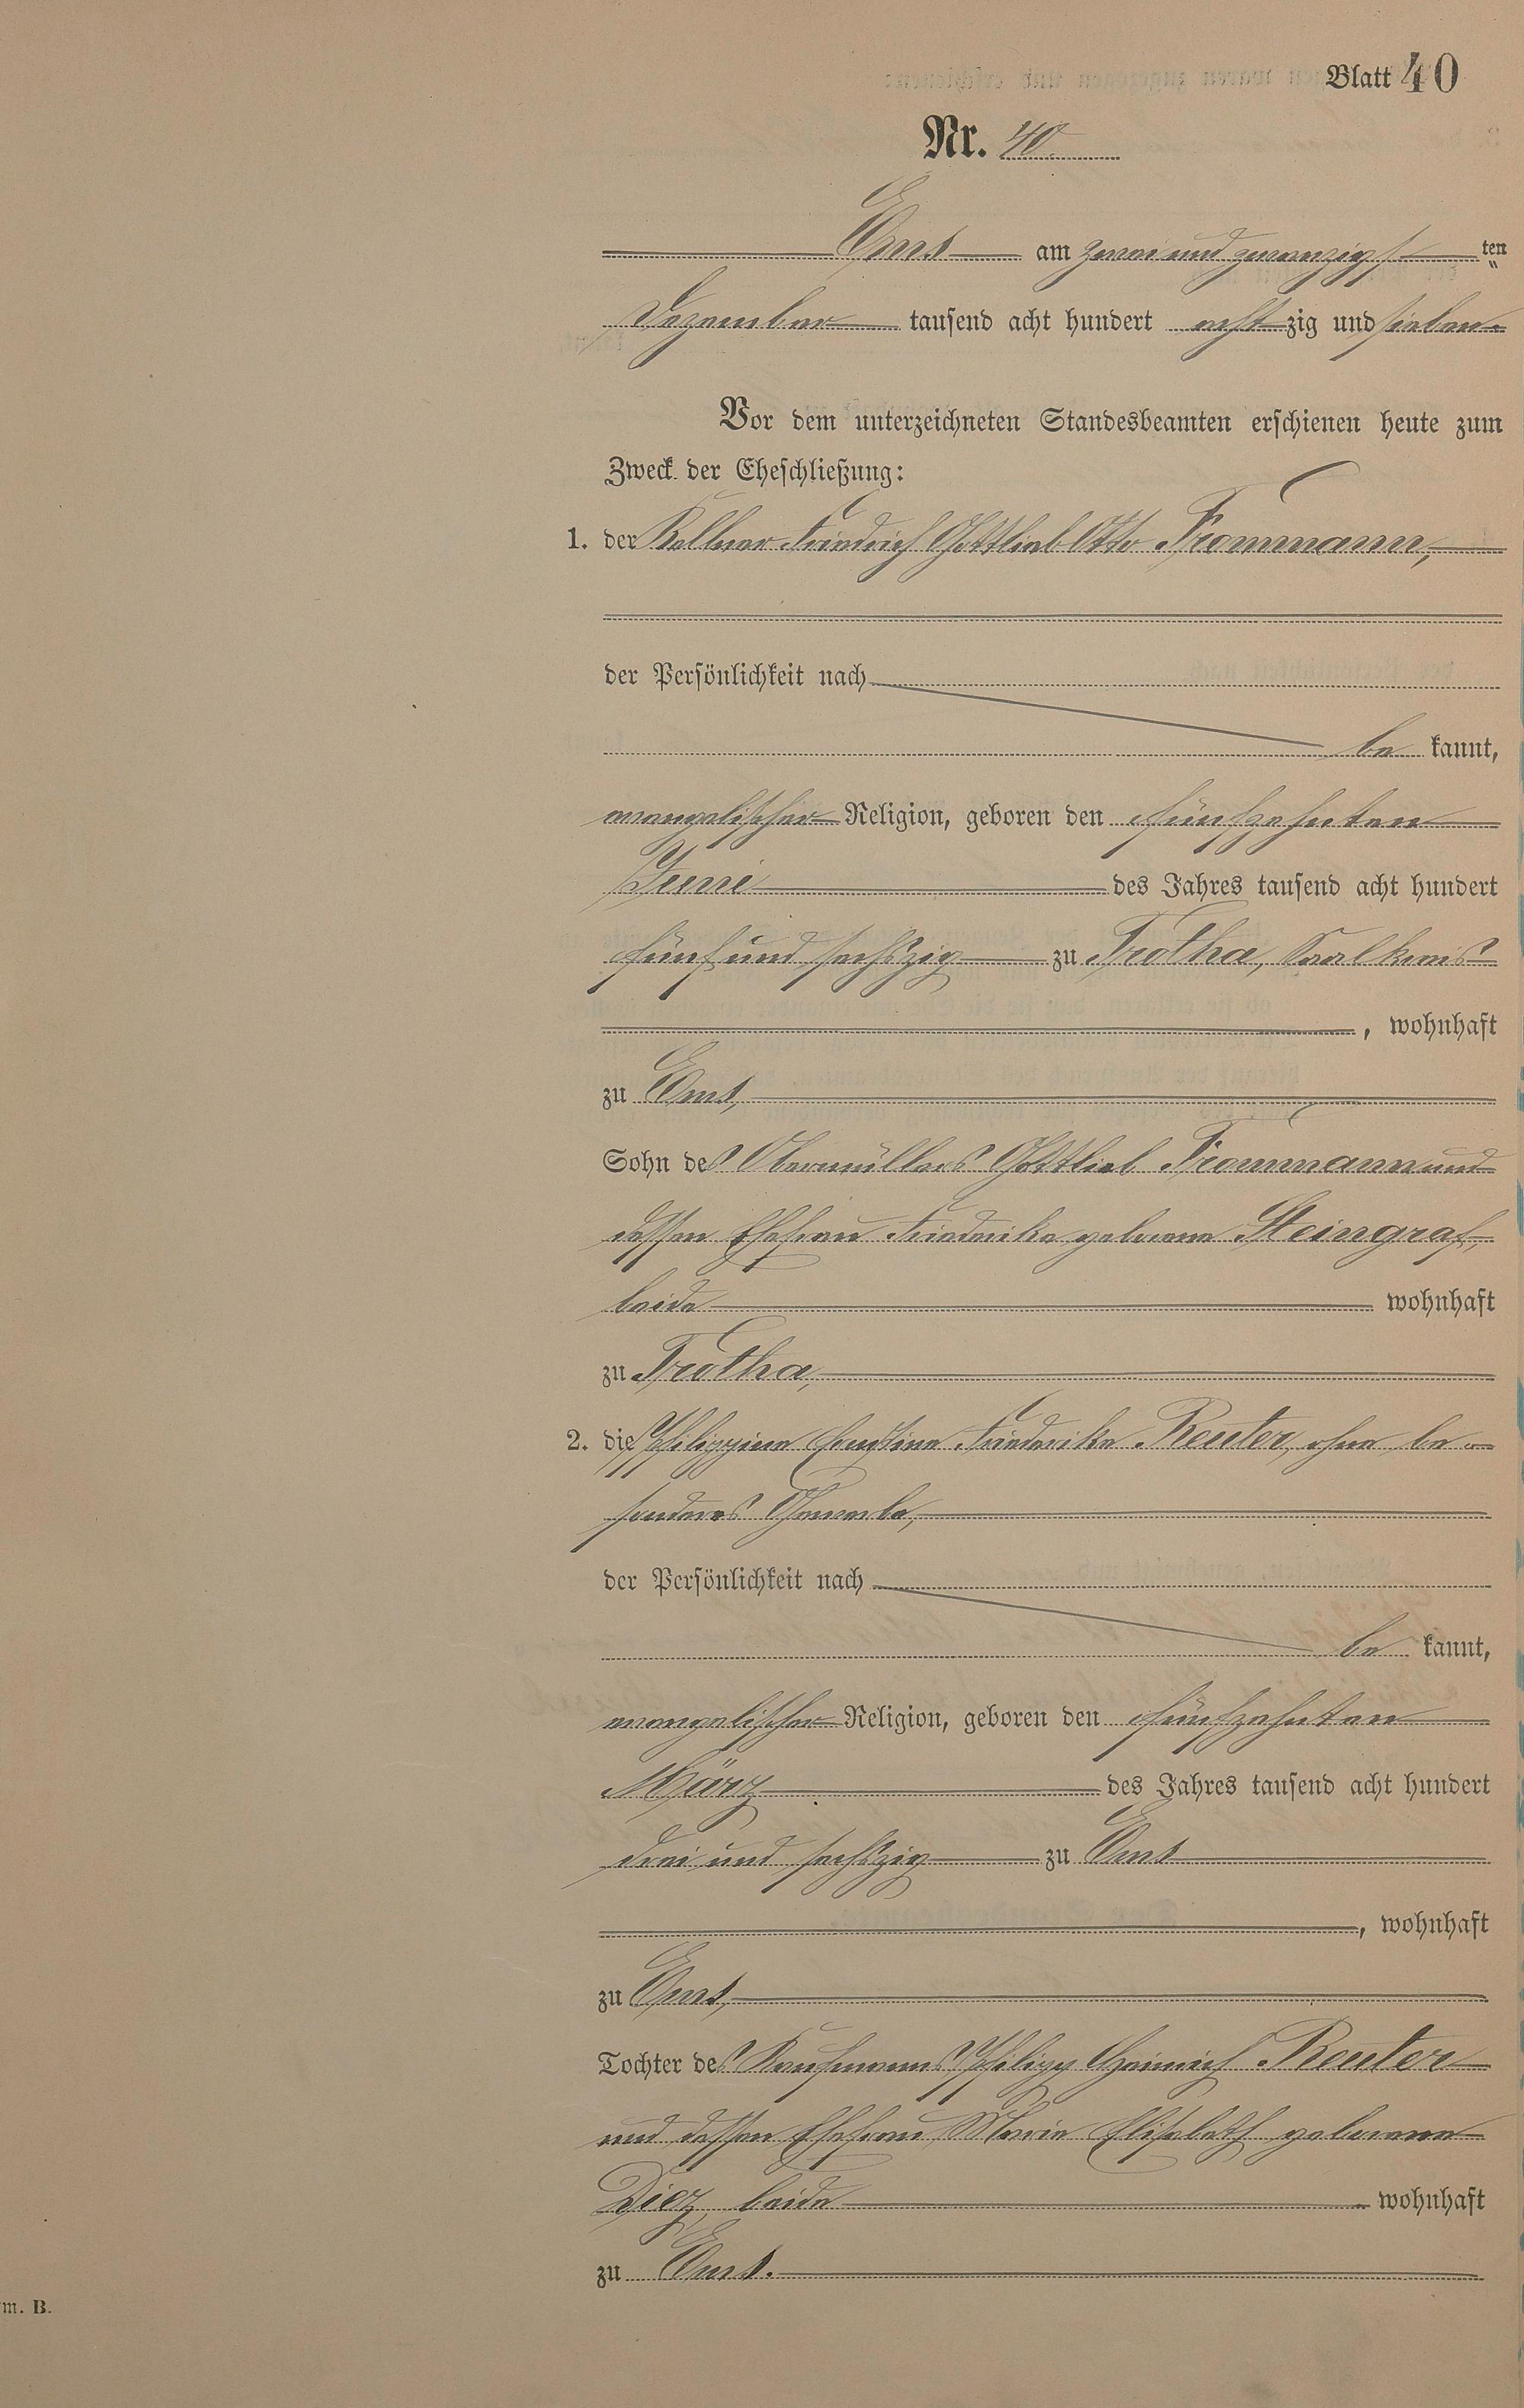 Blatt 40
Nr. 40.
Ems am zwei und zwanzigst ten
Dezember tausend acht hundert acht zig und sieben.
Vor dem unterzeichneten Standesbeamten erschienen heute zum
Zweck der Eheschließung:
1. der Kellner Friedrich Gottlieb Otto Frommann,
der Persönlichkeit nach
be kannt,
evangelischer Religion, geboren den fünfzehnten
Juni des Jahres tausend acht hundert
fünf und sechszig zu Trotha, Saalkreis
, wohnhaft
zu Ems,
Sohn des Obermüllers Gottlieb Frommann und
dessen Ehefrau Friederike geborene Steingraf,
beide wohnhaft
zu Trotha,
2. die Philippine Ernstine Friederike Reuter, ohne be-
sonderes Gewerbe,
der Persönlichkeit nach
be kannt,
evangelischer Religion, geboren den fünfzehnten
März des Jahres tausend acht hundert
drei und sechszig zu Ems
, wohnhaft
zu Ems,
Tochter des Kaufmanns Philipp Heinrich Reuter
und dessen Ehefrau Marie Elisabeth geborene
Diez, beide wohnhaft
zu Ems.
m. B.